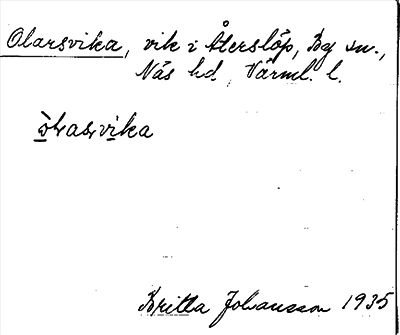 Olarsvika, vik i Återslöp, By sn.,
Näs hd., Värml. l.
Britta Johansson 1935